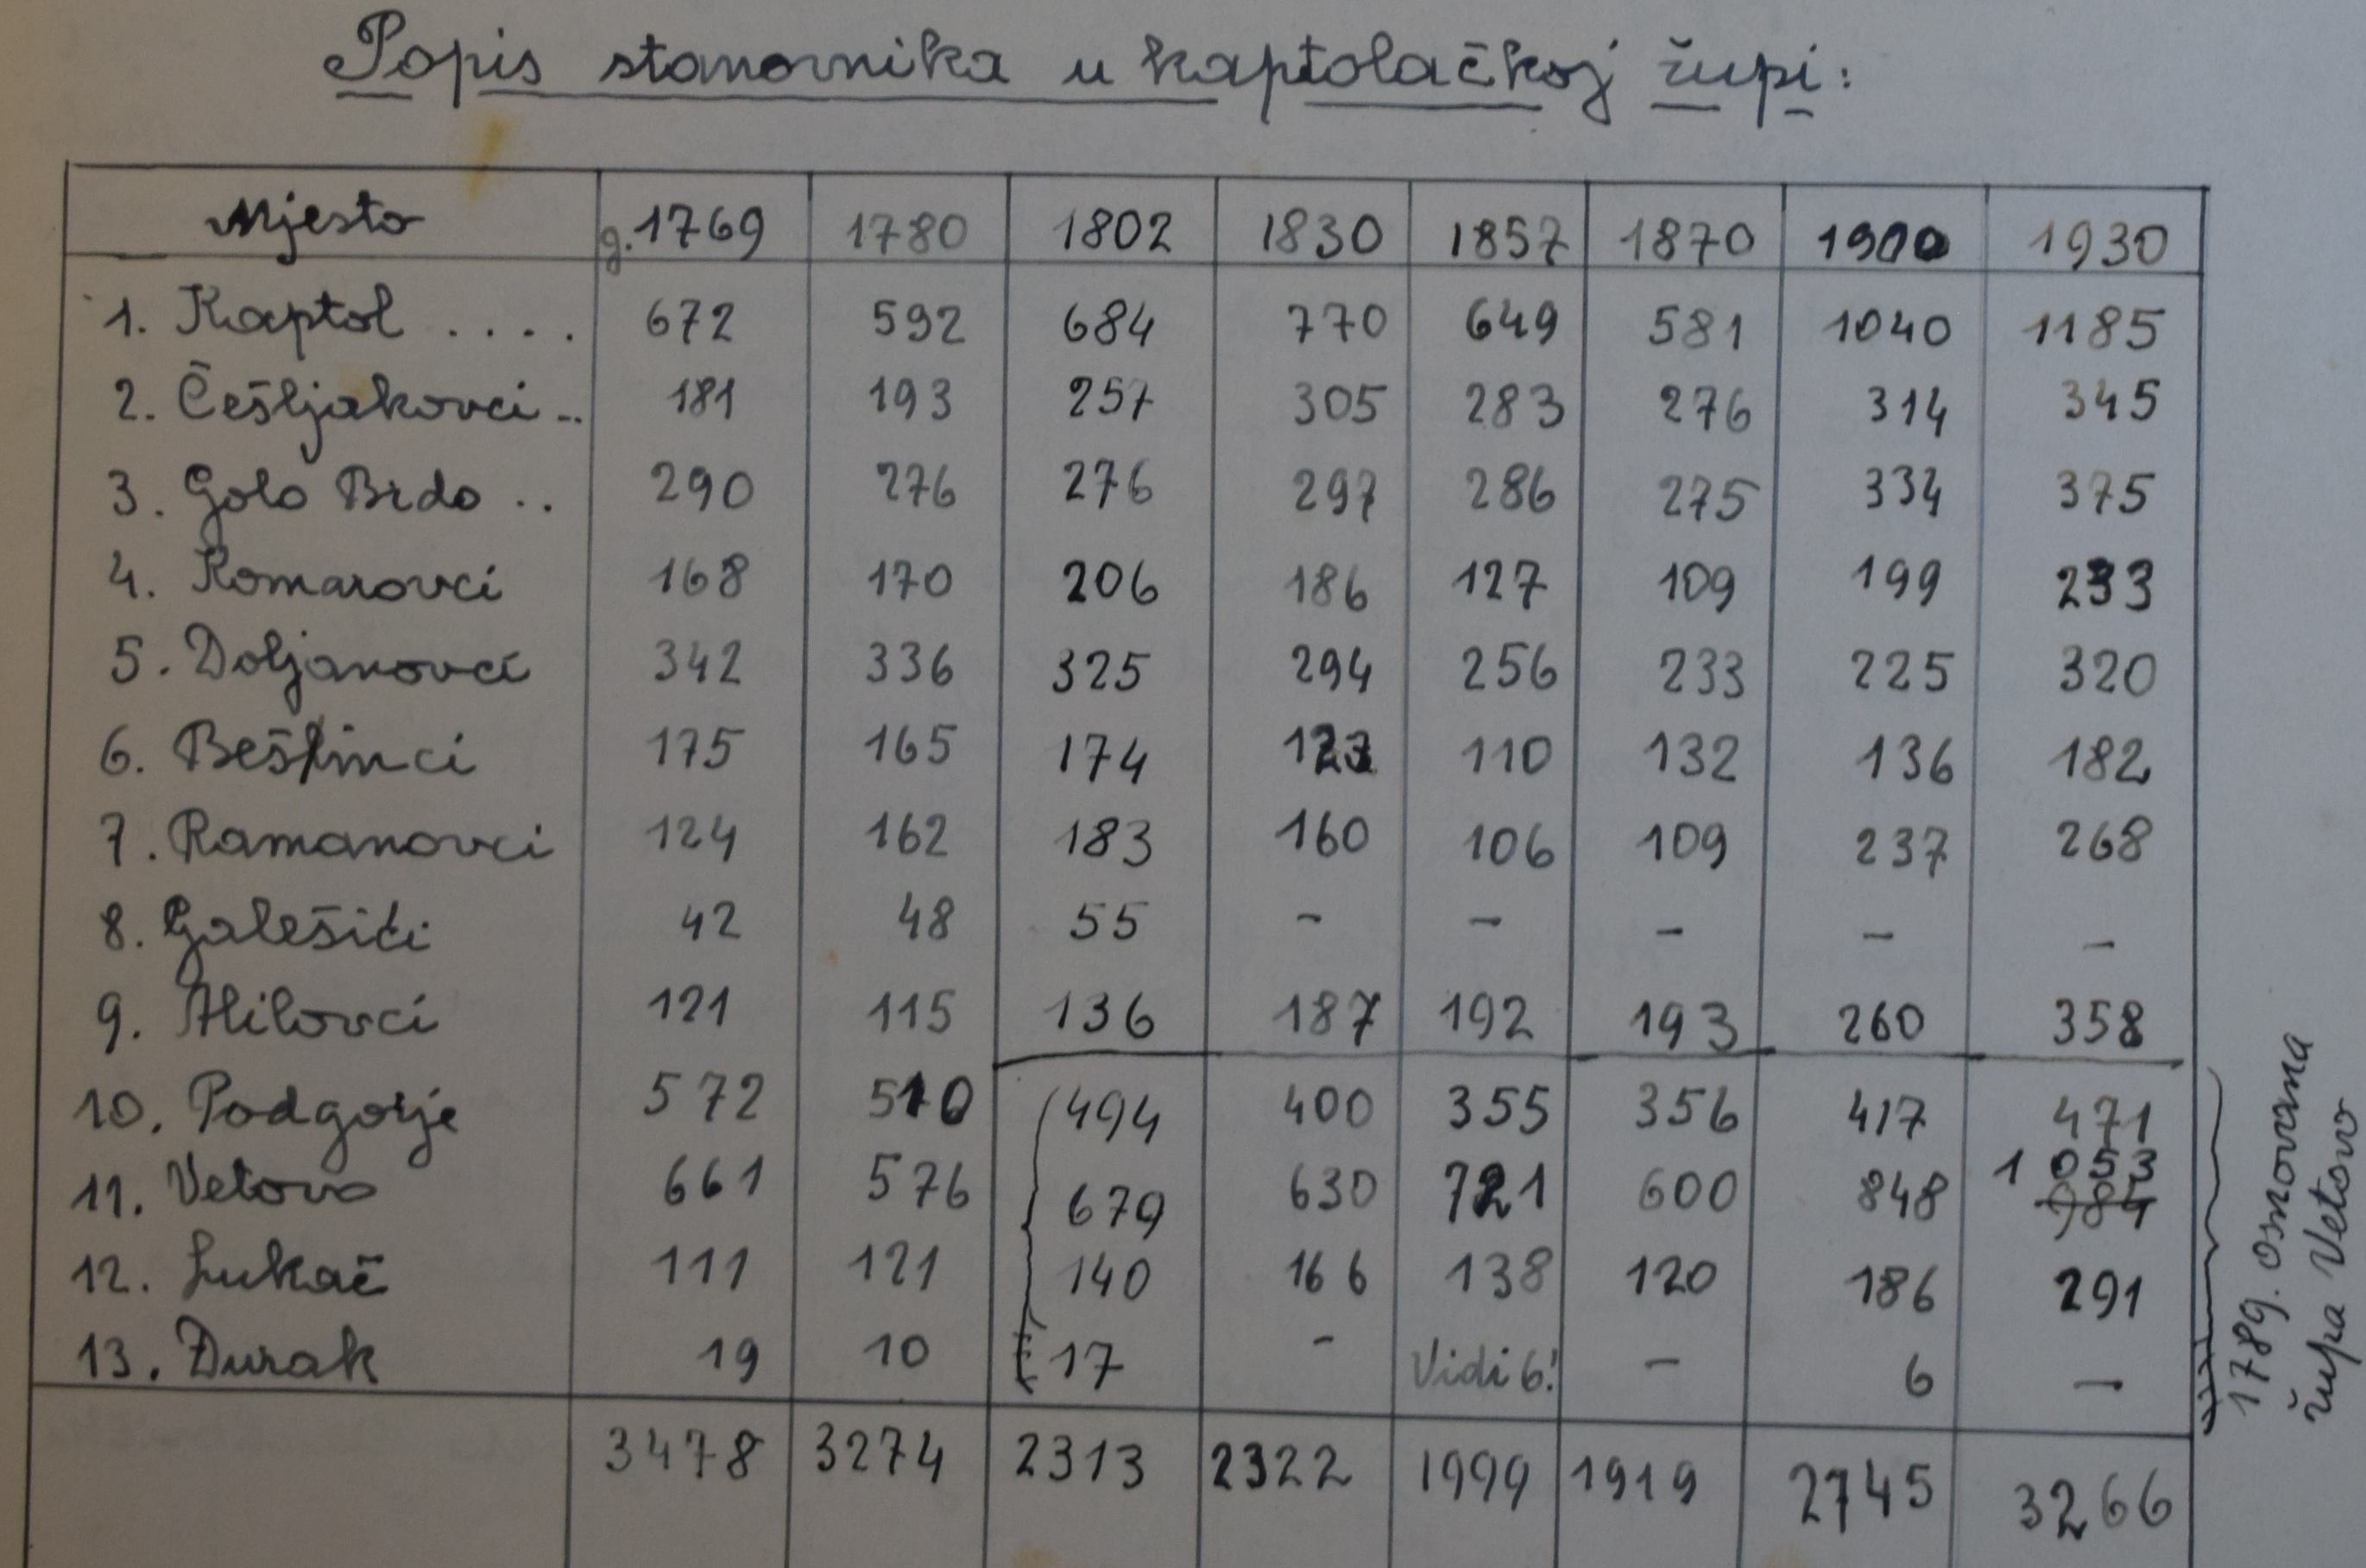 Popis stanovnika u kaptolačkoj župi:
Mjesto g. 1769 1780 1802 1830 1857 1870 1900 1930
1. Kaptol .... 672 592 684 770 649 581 1040 1185
2. Češljakovci .. 181 193 257 305 283 276 314 345
3. Golo Brdo .. 290 276 276 297 286 275 334 375
4. Komarovci 168 170 206 186 127 109 199 233
5. Doljanovci 342 336 325 294 256 233 225 320
6. Bešinci 175 165 174 123 110 132 136 182
7. Ramanovci 124 162 183 160 106 109 237 268
8. Galešići 42 48 55 - - - - -
9. Alilovci 121 115 136 187 192 193 260 358
10. Podgorje 572 510 494 400 355 356 417 471
11. Vetovo 661 576 679 630 721 600 848 1053 984
12. Lukač 111 121 140 166 138 120 186 291
13. Đurak 19 10 17 - Vidi 6! - 6 -
3478 3274 2313 2322 1999 1919 2745 3266
1789. osnovana
župa Vetovo